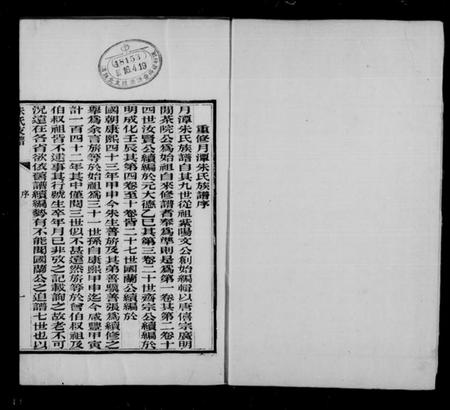 重修月潭朱氏族譜序
月潭朱氏族譜自其九世從祖紫陽文公創始編輯以唐僖宗廣明
間茶院公為始祖自來修譜者奉為準則是為第一卷其第二卷十
四世汝賢公續編於元大德乙巳其第三卷二十世齋宗公續編於
明成化壬辰其第四卷至十卷皆二十七世國蘭公續編於
國朝康熙四十三年甲申今朱生善旂及其弟善驥善張為續修之
舉為余言旂等於始祖為三十一世孫自康熙甲申迄今咸豐甲寅
計一百四十二年其中僅閱三世似不甚遠然旂等於曾伯叔祖及
伯叔祖皆不逮事其行號生卒年月已非攷之記載詢之故老不可
況遠在各省欲依舊譜續編勢有不能閱國蘭公之追譜七世也以
朱氏支譜
序
一
18153